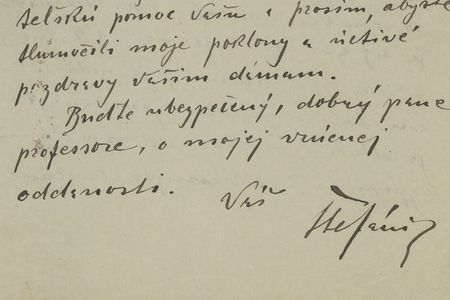 telskú pomoc Vašu a prosím, abyste
tlumočili moje poklony a úctivé
pozdravy Vašim dámam.
Buďte ubezpečený, dobrý pane
professore, o mojej vrúcnej
oddanosti.
Váš
Štefánik